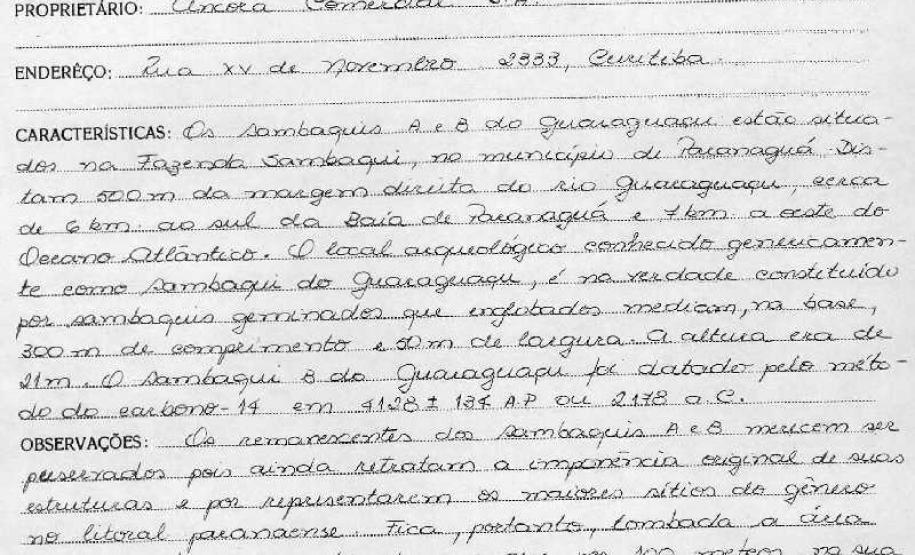 PROPRIETÁRIO: Âncora Comercial S.A.
ENDERÊÇO: Rua XV de Novembro 2333, Curitiba.
CARACTERÍSTICAS: Os Sambaquis A e B do Guaraguaçu estão situa-
dos na Fazenda Sambaqui, no município de Paranaguá. Dis-
tam 500 m da margem direita do rio Guaraguaçu, cerca
de 6 km. ao sul da Baia de Paranaguá e 7 km. a oeste do
Oceano Atlântico. O local arqueológico conhecido genericamen-
te como Sambaqui do Guaraguaçu, é na verdade constituido
por sambaquis geminados que englobados mediam, na base,
300 m de comprimento e 50 m de largura. A altura era de
21 m. O Sambaqui B do Guaraguaçu foi datado pelo méto-
do do carbono-14 em 4128 ± 134 A.P ou 2178 a.C.
OBSERVAÇÕES: Os remanescentes dos Sambaquis A e B merecem ser
preservados pois ainda retratam a imponência original de suas
estruturas e por representarem os maiores sítios do gênero
no litoral paranaense. Fica, portanto, tombada a área
100 metros na sua